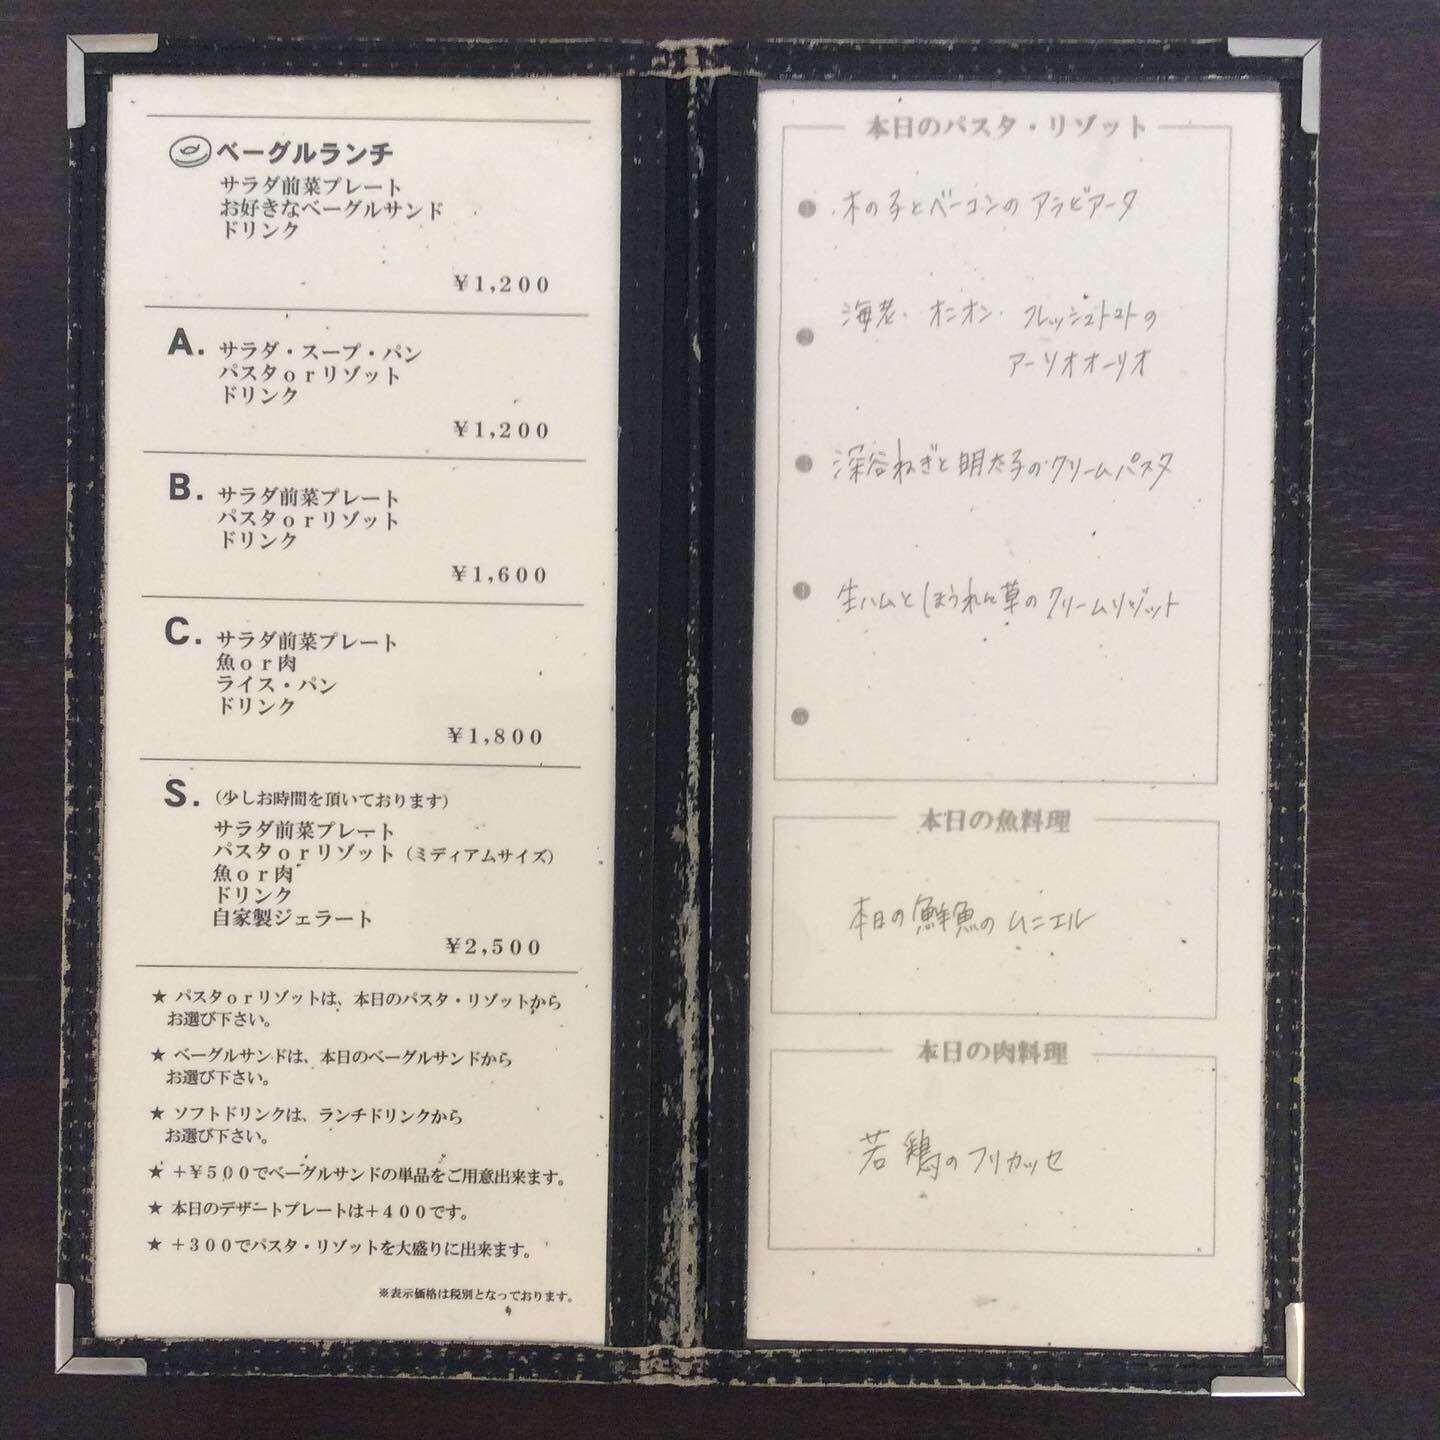 ベーグルランチ
サラダ前菜プレート
お好きなベーグルサンド
ドリンク
¥1,200
A. サラダ・スープ・パン
パスタorリゾット
ドリンク
¥1,200
B. サラダ前菜プレート
パスタorリゾット
ドリンク
¥1,600
C. サラダ前菜プレート
魚or肉
ライス・パン
ドリンク
¥1,800
S. (少しお時間を頂いております)
サラダ前菜プレート
パスタorリゾット(ミディアムサイズ)
魚or肉
ドリンク
自家製ジェラート
¥2,500
★ パスタorリゾットは、本日のパスタ・リゾットから
お選び下さい。
★ ベーグルサンドは、本日のベーグルサンドから
お選び下さい。
★ ソフトドリンクは、ランチドリンクから
お選び下さい。
★ +¥500でベーグルサンドの単品をご用意出来ます。
★ 本日のデザートプレートは+400です。
★ +300でパスタ・リゾットを大盛りに出来ます。
※表示価格は税別となっております。
本日のパスタ・リゾット
1 木の子とベーコンのアラビアータ
2 海老・オニオン・フレッシュトマトの
アーリオオーリオ
3 深谷ねぎと明太子のクリームパスタ
4 生ハムとほうれん草のクリームリゾット
5
本日の魚料理
本日の鮮魚のムニエル
本日の肉料理
若鶏のフリカッセ